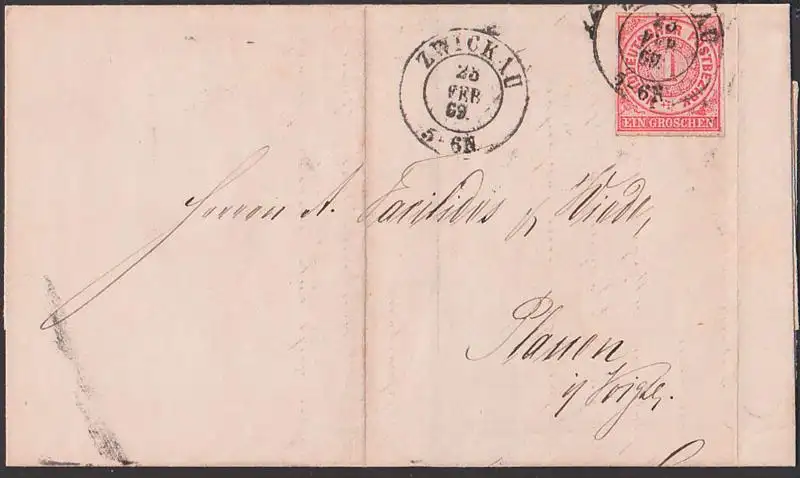 ZWICKAU
23
FEB
69.
5-6N
NORDDEUTSCHER POSTBEZIRK
1
EIN GROSCHEN
Herren A. Facilides & Wiede,
Plauen
i/ Voigtl.